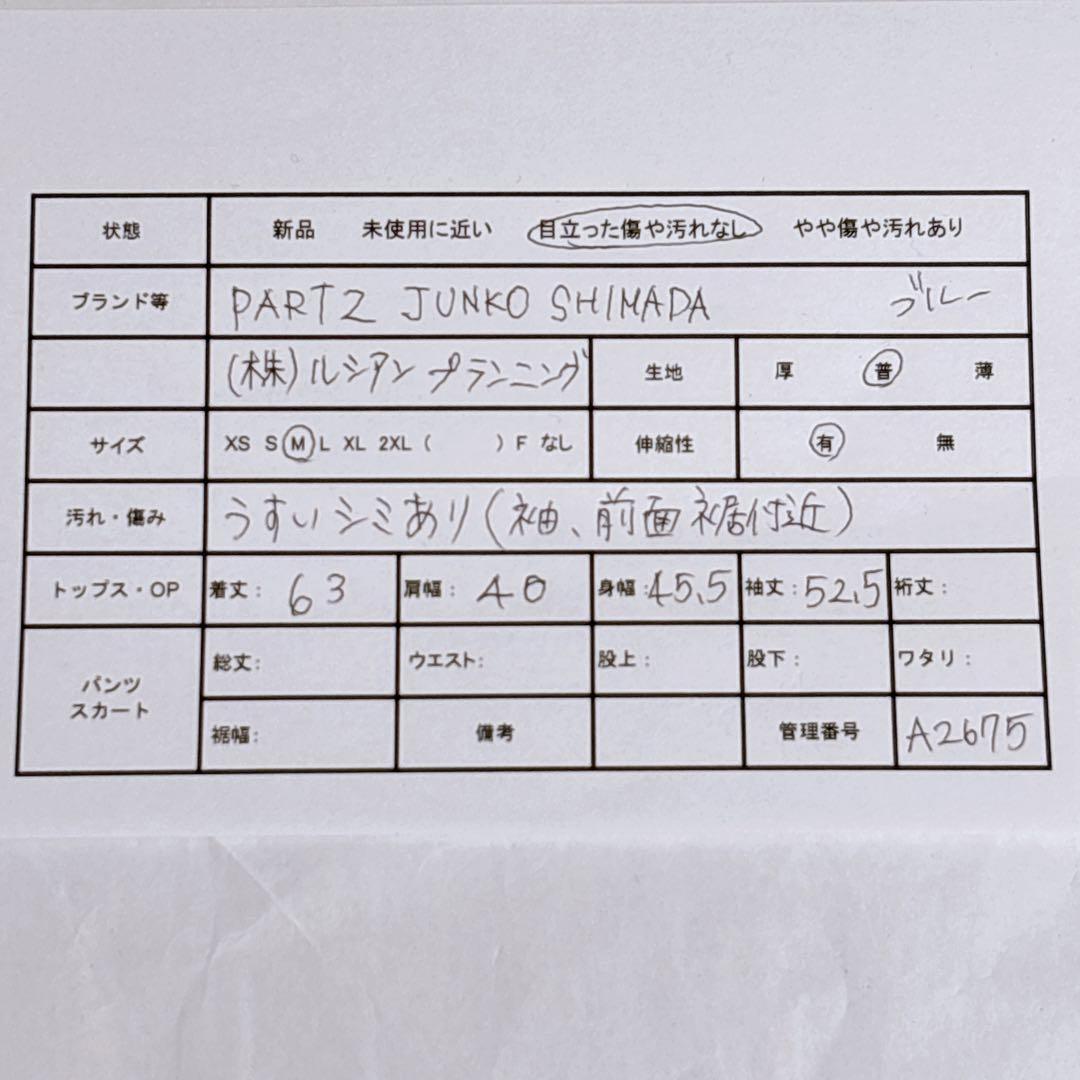 状態 新品 未使用に近い 目立った傷や汚れなし やや傷や汚れあり
ブランド等 PART2 JUNKO SHIMADA ブルー
(株)ルシアンプランニング 生地 厚 普 薄
サイズ XS S M L XL 2XL ( ) F なし 伸縮性 有 無
汚れ・傷み うすいシミあり(袖、前面裾付近)
トップス・OP 着丈: 63 肩幅: 40 身幅: 45.5 袖丈: 52.5 裄丈:
パンツ スカート 総丈: ウエスト: 股上: 股下: ワタリ:
裾幅: 備考 管理番号 A2675